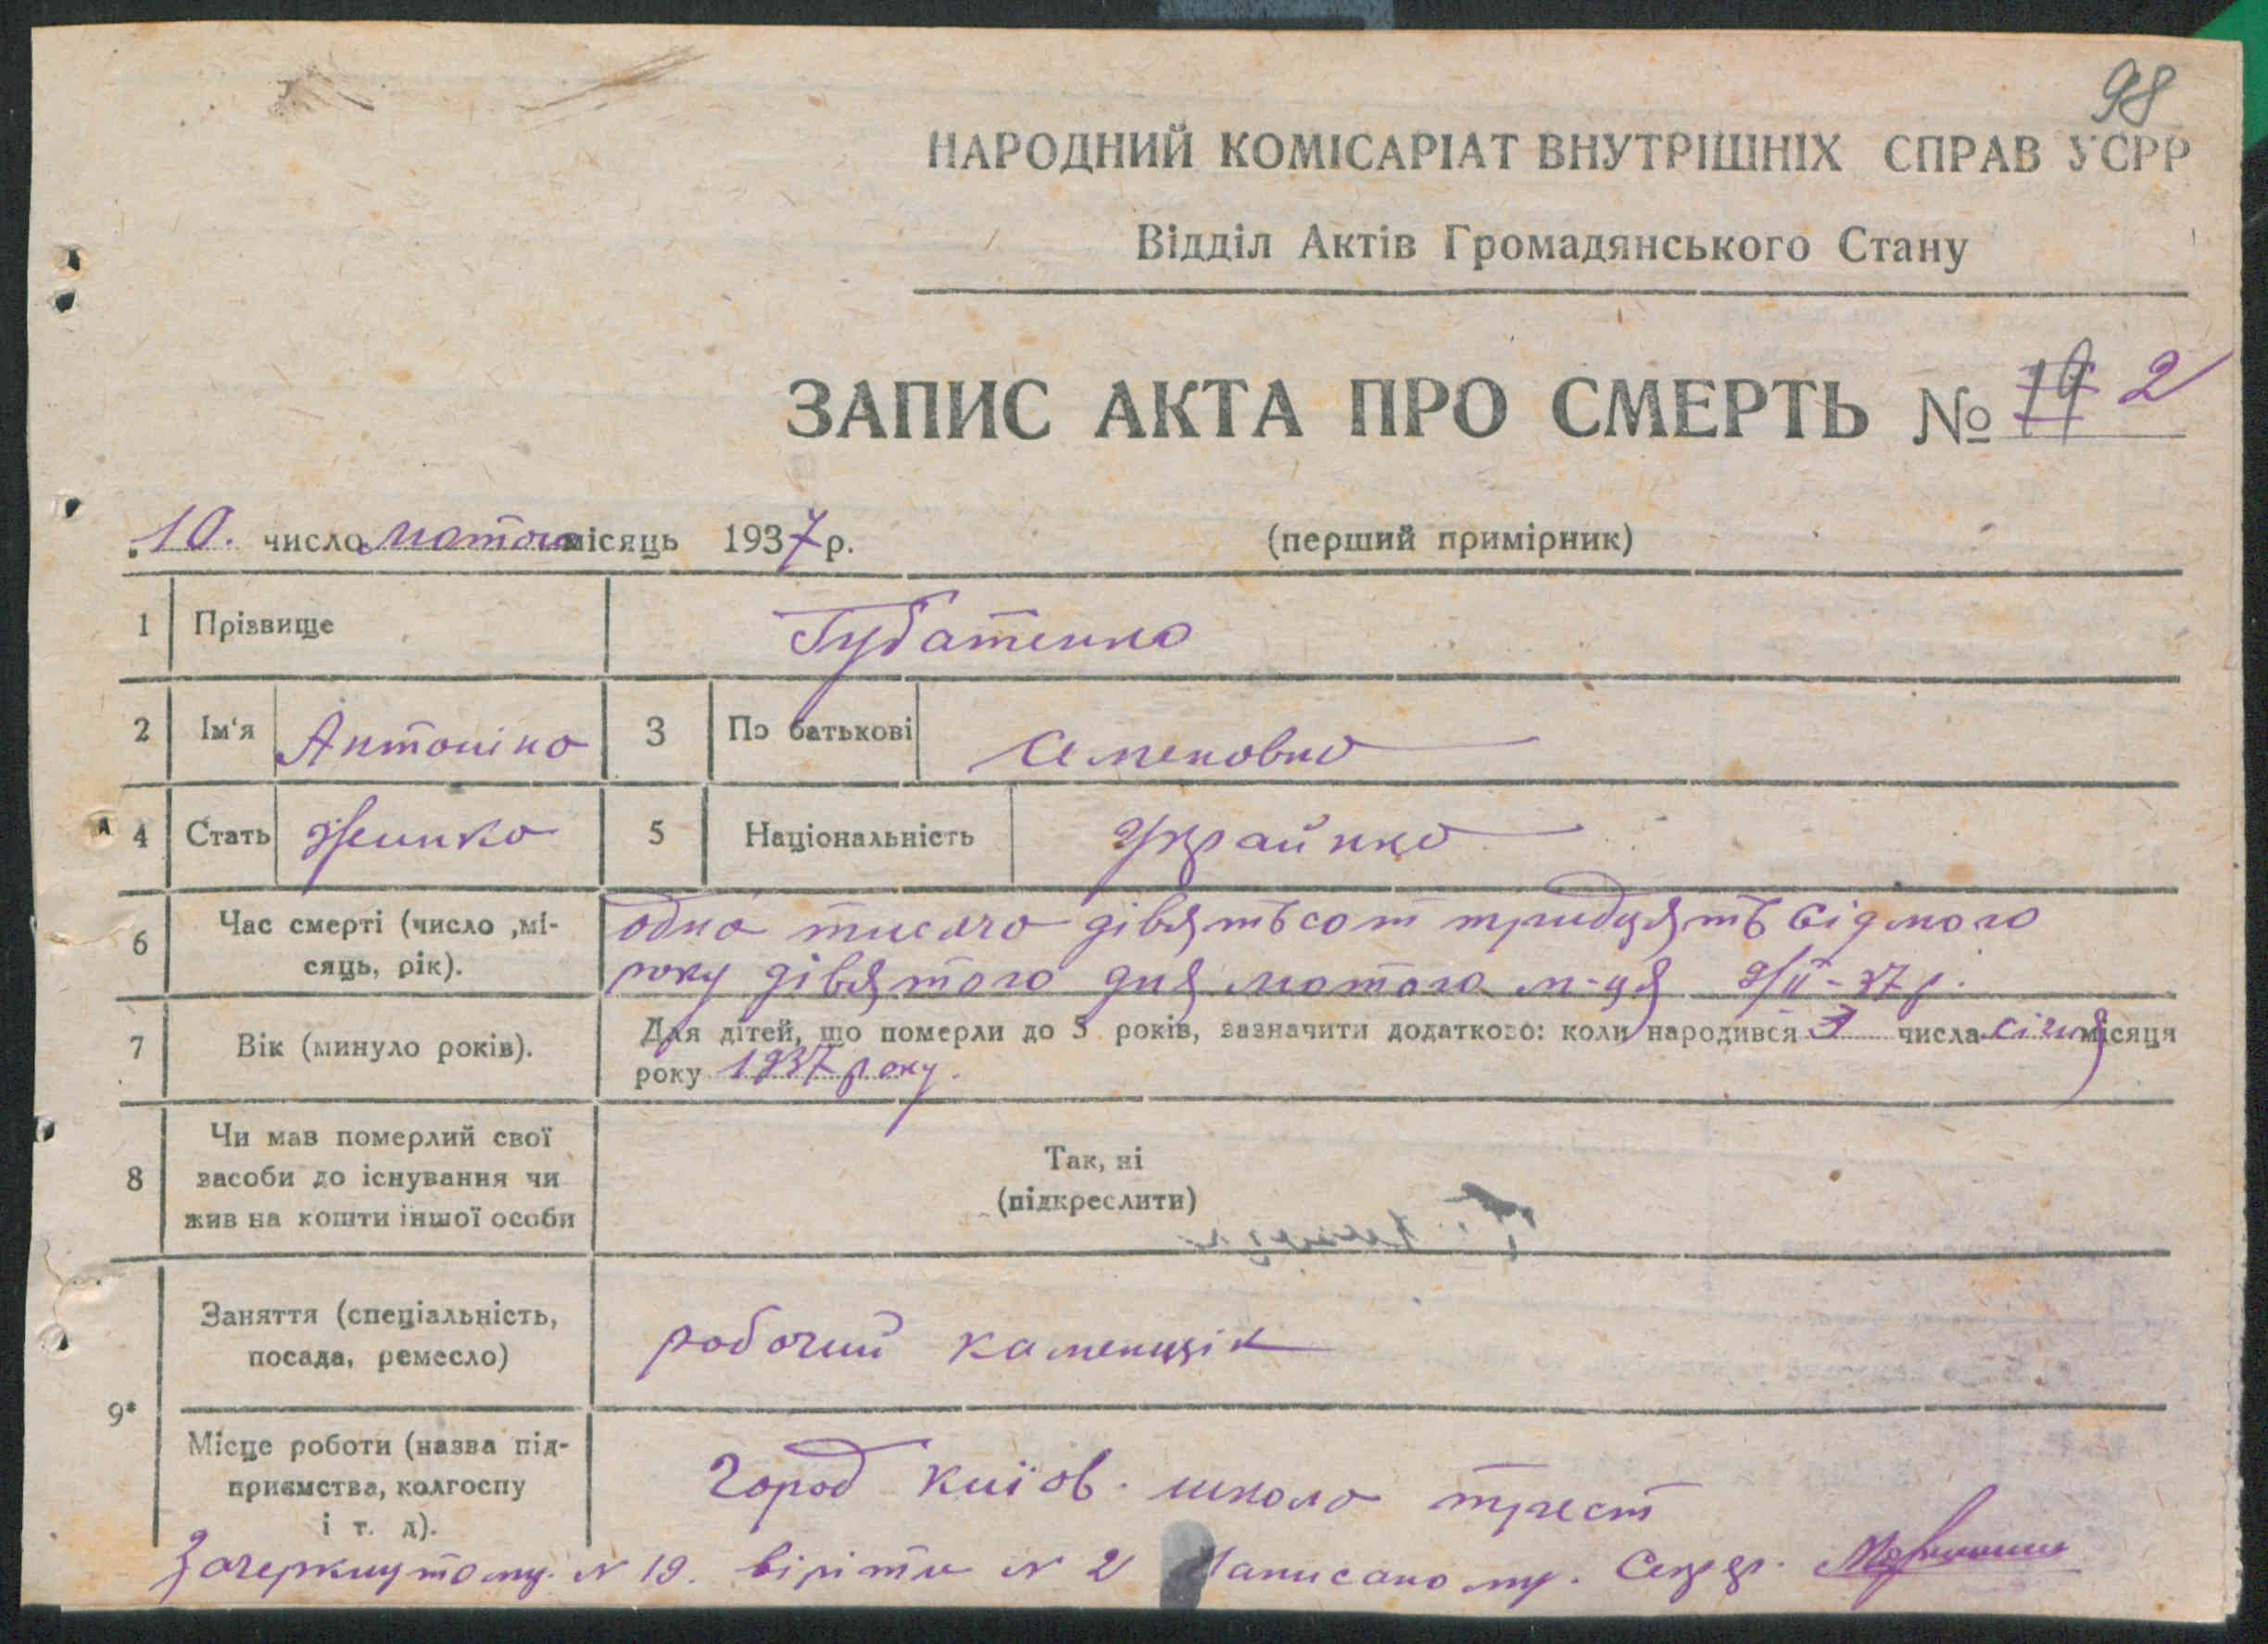 98
НАРОДНИЙ КОМІСАРІАТ ВНУТРІШНІХ СПРАВ УСРР
Відділ Актів Громадянського Стану
ЗАПИС АКТА ПРО СМЕРТЬ № 19 2
10. число лютого місяць 1937 р. (перший примірник)
1 Прізвище Губатенко
2 Ім'я Антоніна 3 По батькові Семеновна
4 Стать Жинка 5 Національність Украйнка
6 Час смерті (число ,мі- одна тисяча дівятьсот тридцять сідмого
сяць, рік). року дівятого дня лютого м-ця 9/II-37 р.
7 Вік (минуло років). Для дітей, що померли до 5 років, зазначити додатково: коли народився 3 числа січня місяця
року 1937 року.
Чи мав померлий свої
8 засоби до існування чи Так, ні
жив на кошти іншої особи (підкреслити)
Заняття (спеціальність, робочий каменщік
посада, ремесло)
9*
Місце роботи (назва під- город Киїов. школо трест
приємства, колгоспу
і т. д).
Зачеркнутому N 19. віріти N 2 Написаному. Секр.